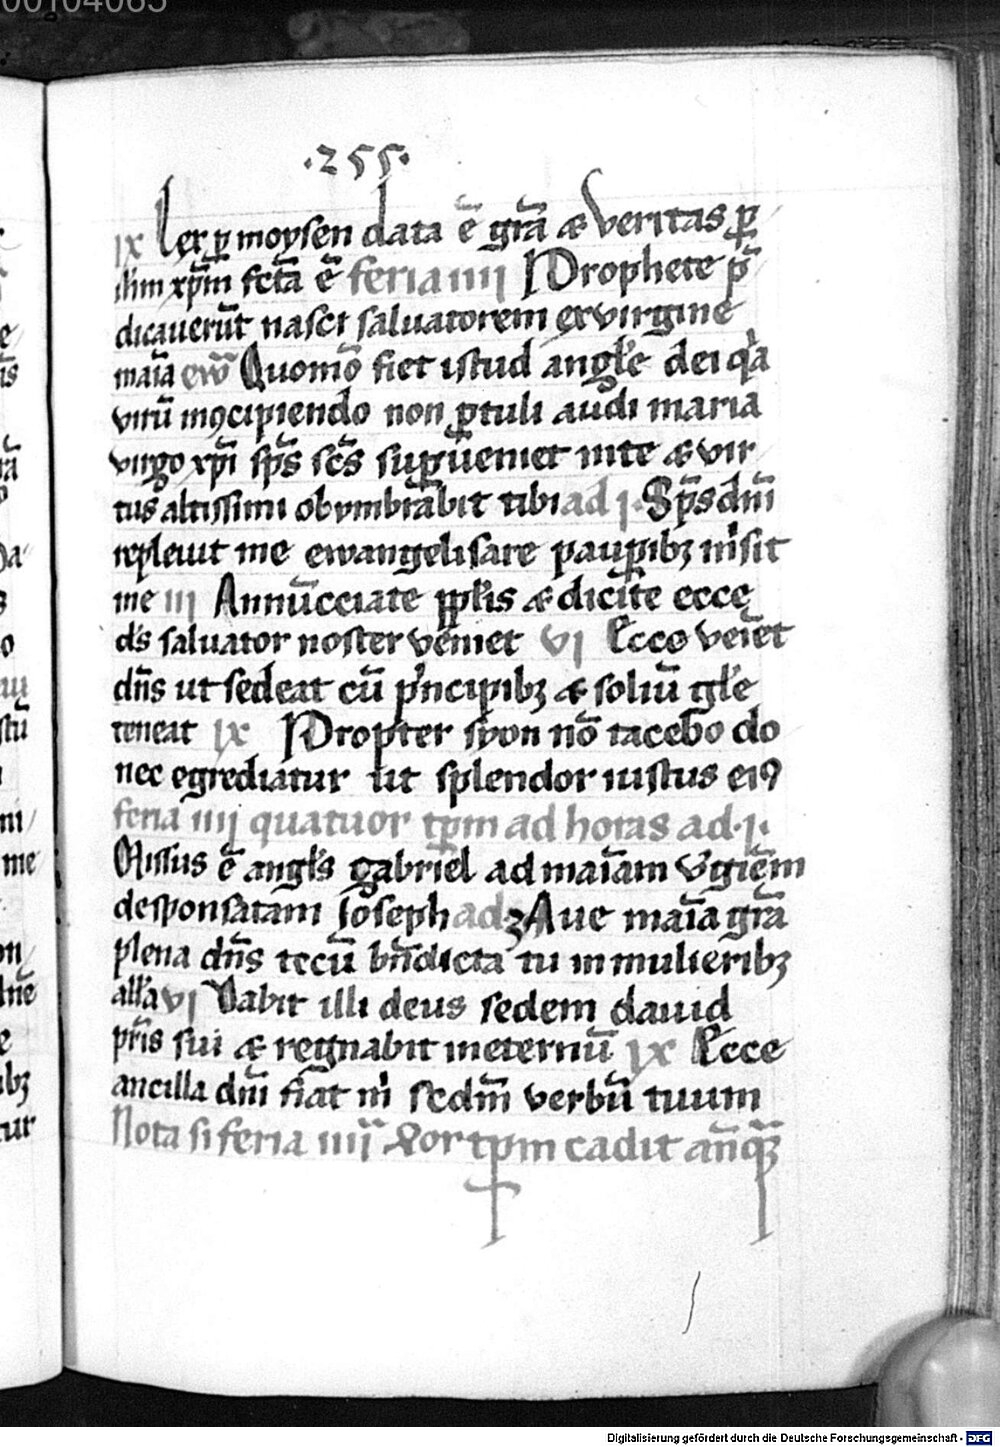 00104065
·255·
ix Lex ꝑ moysen data ē gr̄a et veritas ꝑ
ih̄m xp̄m fct̄a ē feria iiij Prophete p̄
dicauerūt nasci saluatorem ex virgine
mar̄ia ew̄ Quomō fiet istud angl̄e dei q̄a
virū in ꝯcipiendo non ꝑtuli audi maria
virgo xp̄i sp̄s sc̄s suꝑueniet in te et vir
tus altissimi obumbrabit tibi ad j· Sp̄s dn̄i
repleuit me ewangelisare pauꝑibꝫ misit
me iij Annūcciate ppl̄is et dicite ecce
d̄s saluator noster veniet vj Ecce veīet
dn̄s ut sedeat cū p̄ncipibꝫ et soliū gl̄e
teneat ix Propter syon nō tacebo do
nec egrediatur ut splendor iustus eiꝯ
feria iiij quatuor tp̄m ad horas ad·j·
Missus ē angl̄s gabriel ad mar̄iam v̄giēm
desponsatam Joseph ad 3 Aue mar̄ia gr̄a
plena dn̄s tecū bn̄dicta tu in mulieribꝫ
all̄a vj Dabit illi deus sedem dauid
pr̄is sui et regnabit in eternū ix Ecce
ancilla dn̄i fiat m̄ sedm̄ verbū tuum
Nota si feria iiij or tp̄m cadit
Digitalisierung gefördert durch die Deutsche Forschungsgemeinschaft - DFG